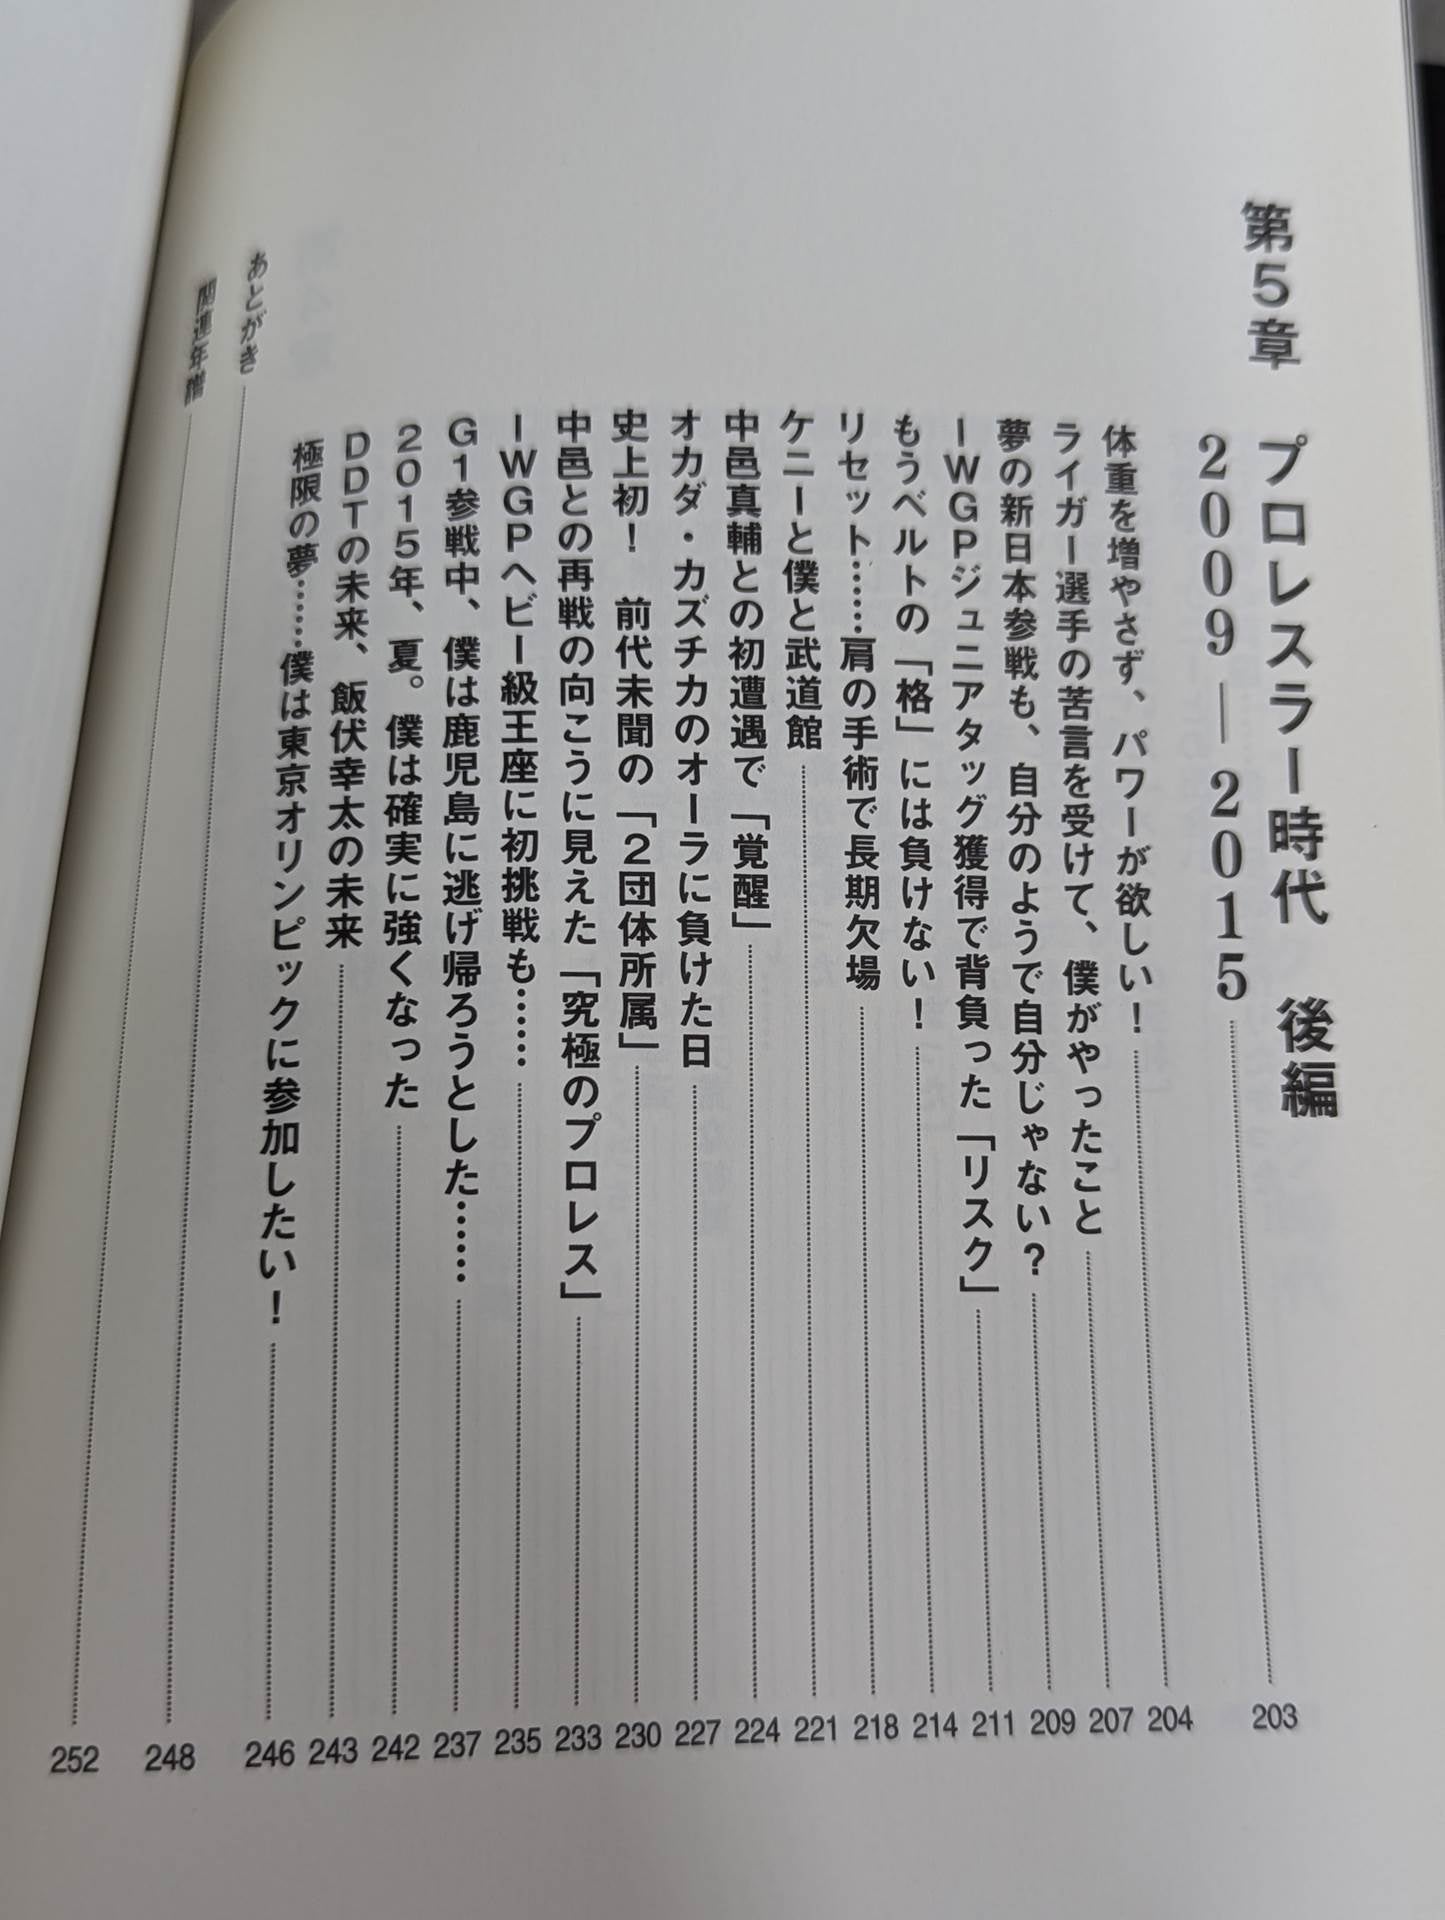 第5章 プロレスラー時代 後編
2009―2015 203
体重を増やさず、パワーが欲しい! 204
ライガー選手の苦言を受けて、僕がやったこと 207
夢の新日本参戦も、自分のようで自分じゃない? 209
IWGPジュニアタッグ獲得で背負った「リスク」 211
もうベルトの「格」には負けない! 214
リセット……肩の手術で長期欠場 218
ケニーと僕と武道館 221
中邑真輔との初遭遇で「覚醒」 224
オカダ・カズチカのオーラに負けた日 227
史上初! 前代未聞の「2団体所属」 230
中邑との再戦の向こうに見えた「究極のプロレス」 233
IWGPヘビー級王座に初挑戦も…… 235
G1参戦中、僕は鹿児島に逃げ帰ろうとした…… 237
2015年、夏。僕は確実に強くなった 242
DDTの未来、飯伏幸太の未来 243
極限の夢……僕は東京オリンピックに参加したい! 246
あとがき 248
関連年譜 252